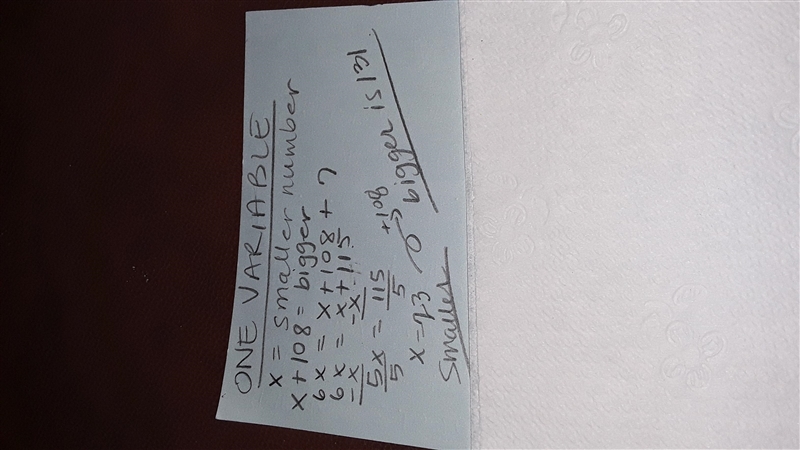 ONE VARIABLE
x = smaller number
x + 108 = bigger
6x = x + 108 + 7
6x = x + 115
-x -x
5x = 115
5 5
+108
x = 23 → bigger is 131
smaller